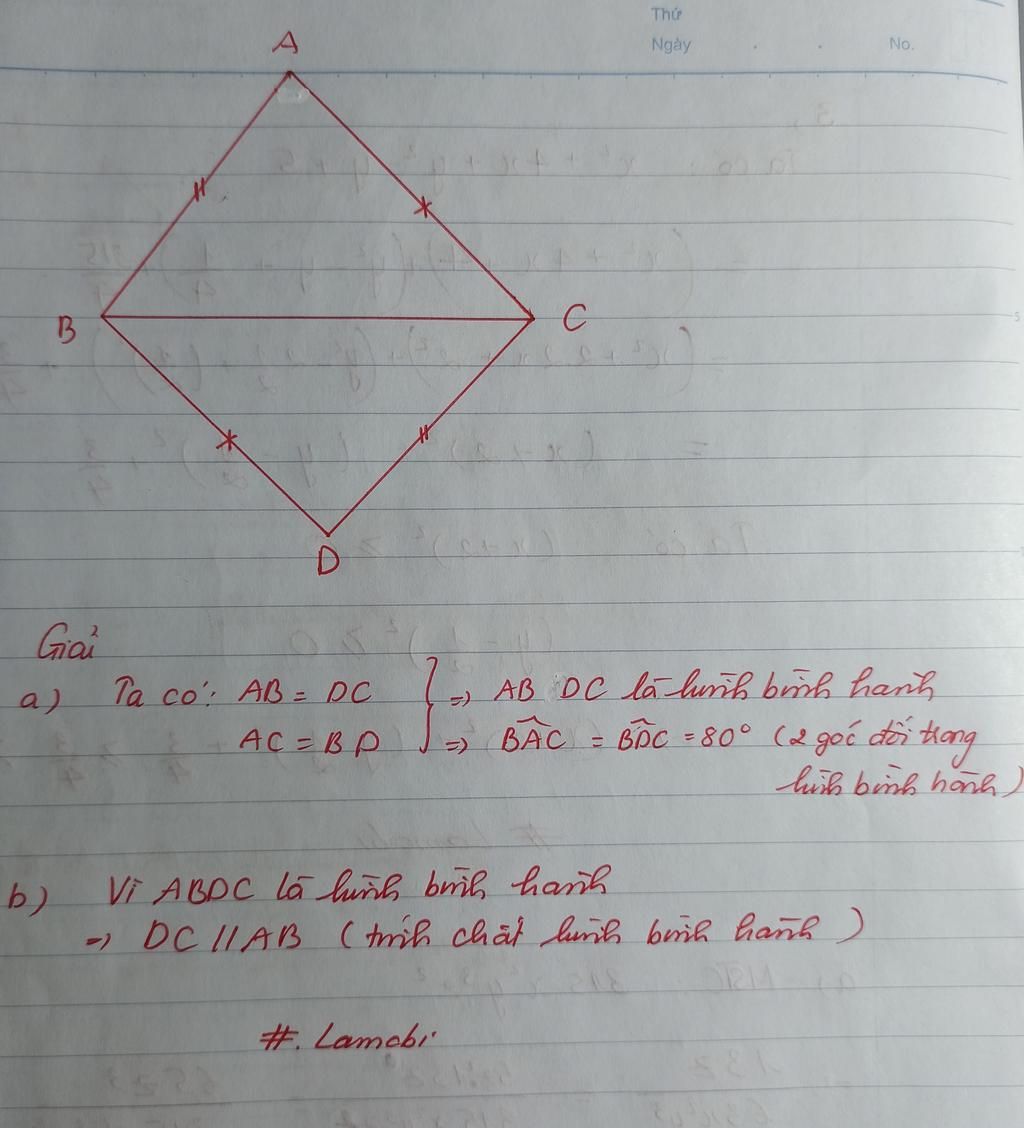 Thứ
Ngày . . No.
A
B
C
D
Giải
a) Ta có: AB = DC } => AB DC là hình bình hành
AC = BD => BAC = BDC = 80° (2 góc đối trong
hình bình hành)
b) Vì ABDC là hình bình hành
=> DC // AB (tính chất hình bình hành)
#. Lamchi